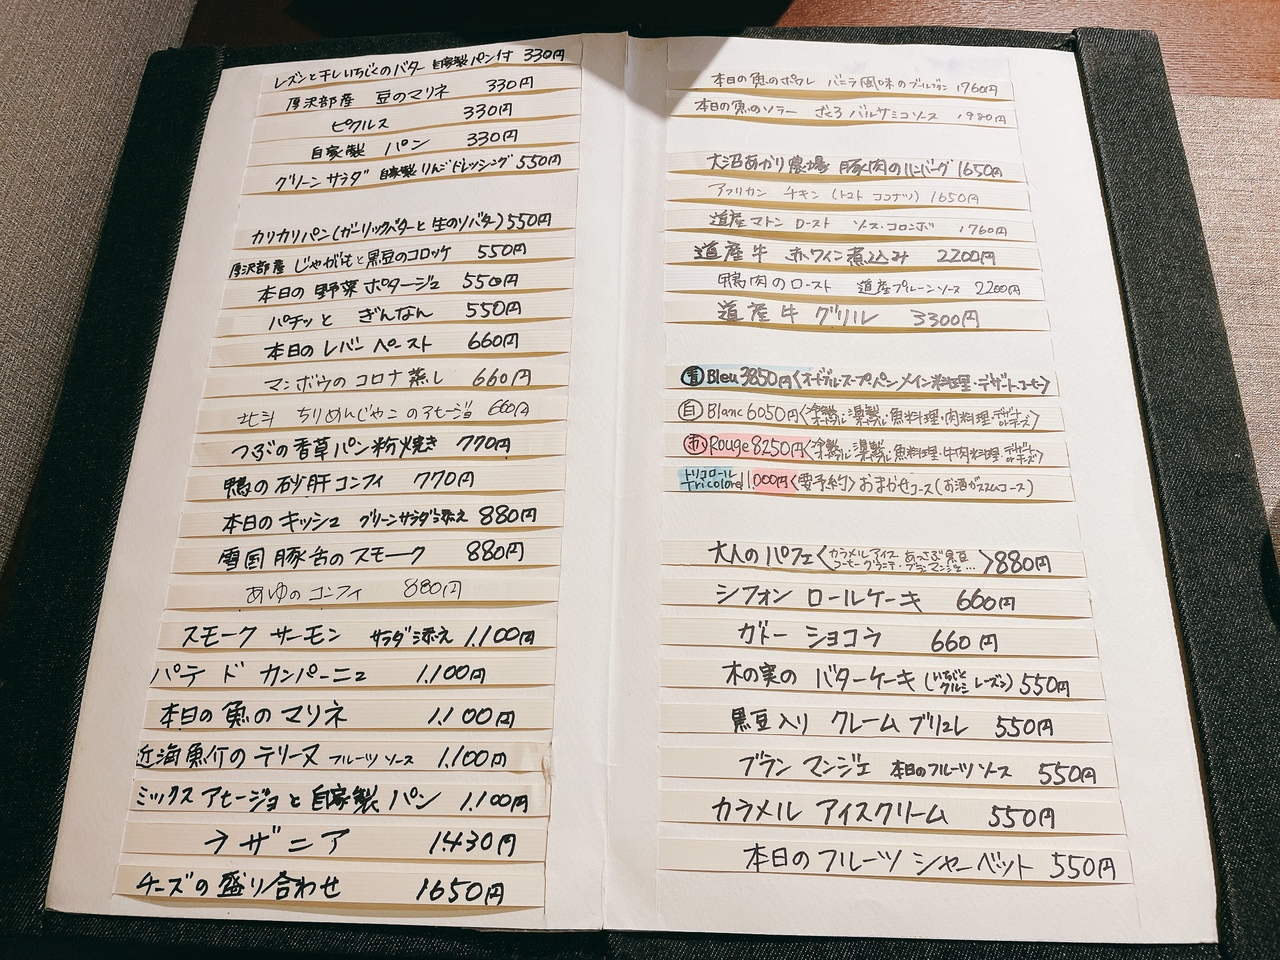 レーズンと干しいちじくのバター 自家製パン付 330円
厚沢部産 豆のマリネ 330円
ピクルス 330円
自家製 パン 330円
グリーンサラダ 自家製りんごドレッシング 550円
カリカリパン(ガーリックバターと生のりバター)550円
厚沢部産 じゃがいもと黒豆のコロッケ 550円
本日の野菜ポタージュ 550円
パチッと ぎんなん 550円
本日のレバーペースト 660円
マンボウのコロナ蒸し 660円
北斗 ちりめんじゃこのアヒージョ 660円
つぶの香草パン粉焼き 770円
鴨の砂肝コンフィ 770円
本日のキッシュ グリーンサラダ添え 880円
雪国豚舌のスモーク 880円
あゆのコンフィ 880円
スモークサーモン サラダ添え 1,100円
パテ ド カンパーニュ 1,100円
本日の魚のマリネ 1,100円
近海魚介のテリーヌ フルーツソース 1,100円
ミックスアヒージョと自家製パン 1,100円
ラザニア 1430円
チーズの盛り合わせ 1650円
本日の魚のポワレ バニラ風味のブールブラン 1760円
本日の魚のソテー ざくろバルサミコソース 1980円
大沼あかり農場 豚肉のハンバーグ 1650円
アフリカン チキン (トマト ココナツ) 1650円
道産マトン ロースト ソース・コロンボ 1760円
道産牛 赤ワイン煮込み 2200円
鴨肉のロースト 道産プルーンソース 2200円
道産牛 グリル 3300円
青 Bleu 3850円〈オードブル・スープ・パン・メイン料理・デザート・コーヒー〉
白 Blanc 6050円〈冷製オードブル・温製オードブル・魚料理・肉料理・デザートorチーズ〉
赤 Rouge 8250円〈冷製オードブル・温製オードブル・魚料理・牛肉料理・デザートorチーズ〉
トリコロール Tricolore 11,000円〈要予約〉おまかせコース(お酒がススムコース)
大人のパフェ〈カラメルアイス あっさぶ黒豆 コーヒーグラニテ・ブランマンジェ…〉880円
シフォン ロールケーキ 660円
ガトー ショコラ 660円
木の実の バターケーキ(いちじくとクルミ レーズン) 550円
黒豆入り クレームブリュレ 550円
ブラン マンジェ 本日のフルーツソース 550円
カラメル アイスクリーム 550円
本日のフルーツ シャーベット 550円